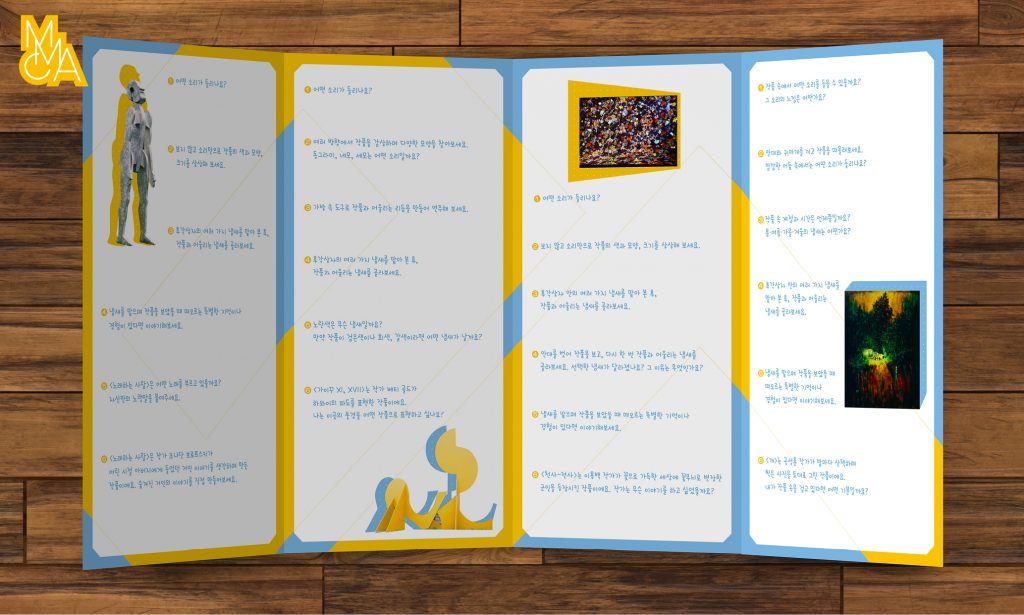 MMCA
1 어떤 소리가 들리나요?
2 보지 않고 소리만으로 작품의 색과 모양,
크기를 상상해 보세요.
3 후각상자의 여러 가지 냄새를 맡아 본 후,
작품과 어울리는 냄새를 골라보세요.
4 냄새를 맡으며 작품을 보았을 때 떠오르는 특별한 기억이나
경험이 있다면 이야기해보세요.
5 <노래하는 사람>은 어떤 노래를 부르고 있을까요?
노랫말을 붙여주세요.
6 <노래하는 사람>은 작가 조나단 보로프스키가
어린 시절 아버지에게 들었던 거인 이야기를 생각하며 만든
작품이에요. 숨겨진 거인의 이야기를 직접 만들어보세요.
1 어떤 소리가 들리나요?
2 여러 방향에서 작품을 감상하며 다양한 모양을 찾아보세요.
동그라미, 네모, 세모는 어떤 소리일까요?
3 가방 속 도구로 작품과 어울리는 리듬을 만들어 연주해 보세요.
4 후각상자의 여러 가지 냄새를 맡아 본 후,
작품과 어울리는 냄새를 골라보세요.
5 노란색은 무슨 냄새일까요?
만약 작품이 검은색이나 회색, 갈색이라면 어떤 냄새가 날까요?
6 <가이꾸 XI, XVII>는 작가 베티 골드가
하와이의 파도를 표현한 작품이에요.
나는 이곳의 풍경을 어떤 작품으로 표현하고 싶나요?
1 어떤 소리가 들리나요?
2 보지 않고 소리만으로 작품의 색과 모양, 크기를 상상해 보세요.
3 후각상자 안의 여러 가지 냄새를 맡아 본 후,
작품과 어울리는 냄새를 골라보세요.
4 안대를 벗어 작품을 보고, 다시 한 번 작품과 어울리는 냄새를
골라보세요. 선택한 냄새가 달라졌나요? 그 이유는 무엇인가요?
5 냄새를 맡으며 작품을 보았을 때 떠오르는 특별한 기억이나
경험이 있다면 이야기해보세요.
6 <천사-전사>는 이용백 작가가 꽃으로 가득한 세상에 꽃무늬로 변장한
군인을 등장시킨 작품이에요. 작가는 무슨 이야기를 하고 싶었을까요?
1 작품 속에서 어떤 소리를 들을 수 있을까요?
그 소리의 느낌은 어떤가요?
2 안대와 귀마개를 끼고 작품을 떠올려보세요.
깜깜한 어둠 속에서는 어떤 소리가 들리나요?
3 작품 속 계절과 시간은 언제쯤일까요?
봄·여름·가을·겨울의 냄새는 어떤가요?
4 후각상자 안의 여러 가지 냄새를
맡아 본 후, 작품과 어울리는
냄새를 골라보세요.
5 냄새를 맡으며 작품을 보았을 때
떠오르는 특별한 기억이나
경험이 있다면 이야기해보세요.
6 <개>는 공성훈 작가가 밤마다 산책하며
찍은 사진을 토대로 그린 작품이에요.
내가 작품 속을 걷고 있다면 어떤 기분일까요?